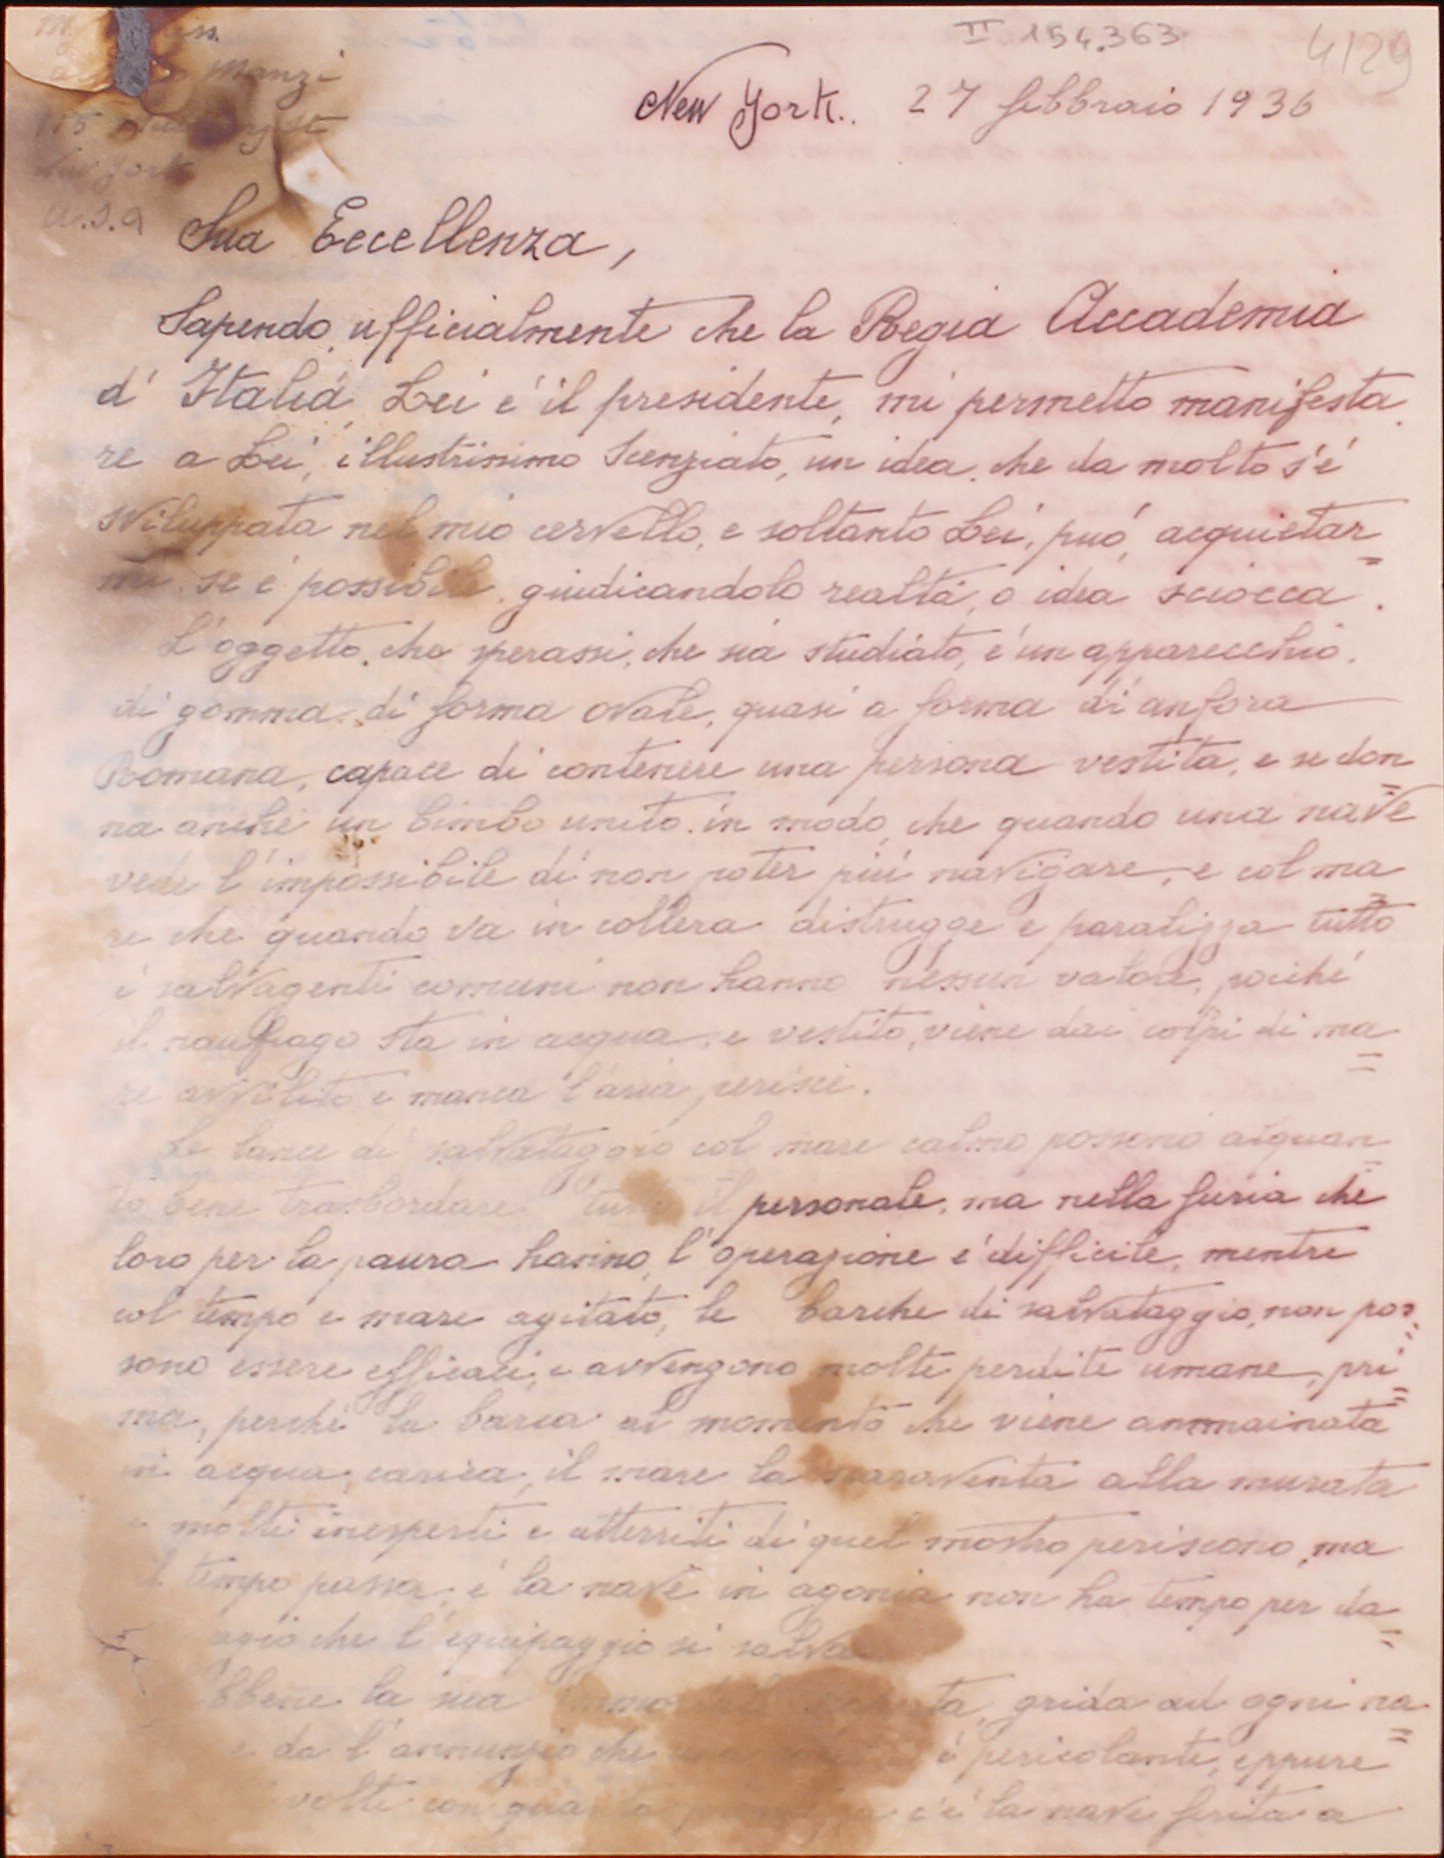 II 154.363
4129
Manzi
New York
U.S.A
New York.. 27 febbraio 1936
Sua Eccellenza,
Sapendo, ufficialmente che la Regia Accademia
d' Italia, Lei é il presidente, mi permetto manifesta
re a Lei, illustrissimo Scenziato, un idea, che da molto s'é
sviluppata nel mio cervello, e soltanto Lei, può, acquietar=
mi, se é possibile, giudicandolo realtá, o idea sciocca.
L'oggetto, che sperassi, che sia studiato, é un apparecchio,
di gomma di forma ovale, quasi a forma di anfora
Romana, capace di contenere una persona vestita, e se don=
na anche un bimbo unito in modo, che quando una nave
vede l'impossibile di non poter piú navigare, e col ma=
re che quando va in collera distrugge e paralizza tutto
i salvagenti comuni non hanno nessun valore, poiché
il naufrago sta in acqua, e vestito, viene dai colpi di ma=
re avvilito e manca l'aria perisci.
Le lance di salvataggio col mare calmo possono alquan=
to bene trasbordare tutto il personale, ma nella furia che
loro per la paura hanno, l'operazione é difficile, mentre
col tempo e mare agitato, le barche di salvataggio, non pos=
sono essere efficaci, e avvengono molte perdite umane, pri=
ma, perché la barca al momento che viene ammainata
in acqua, carica, il mare la alla murata
e molti inesperti e atterriti di quel mostro periscono, ma
il tempo passa, e la nave in agonia non ha tempo per da=
agio che l'equipaggio si salva
Ebbene la sua grida ad ogni na=
e da l'annunzio che é pericolante, eppure
volte con c'é la nave ferita a